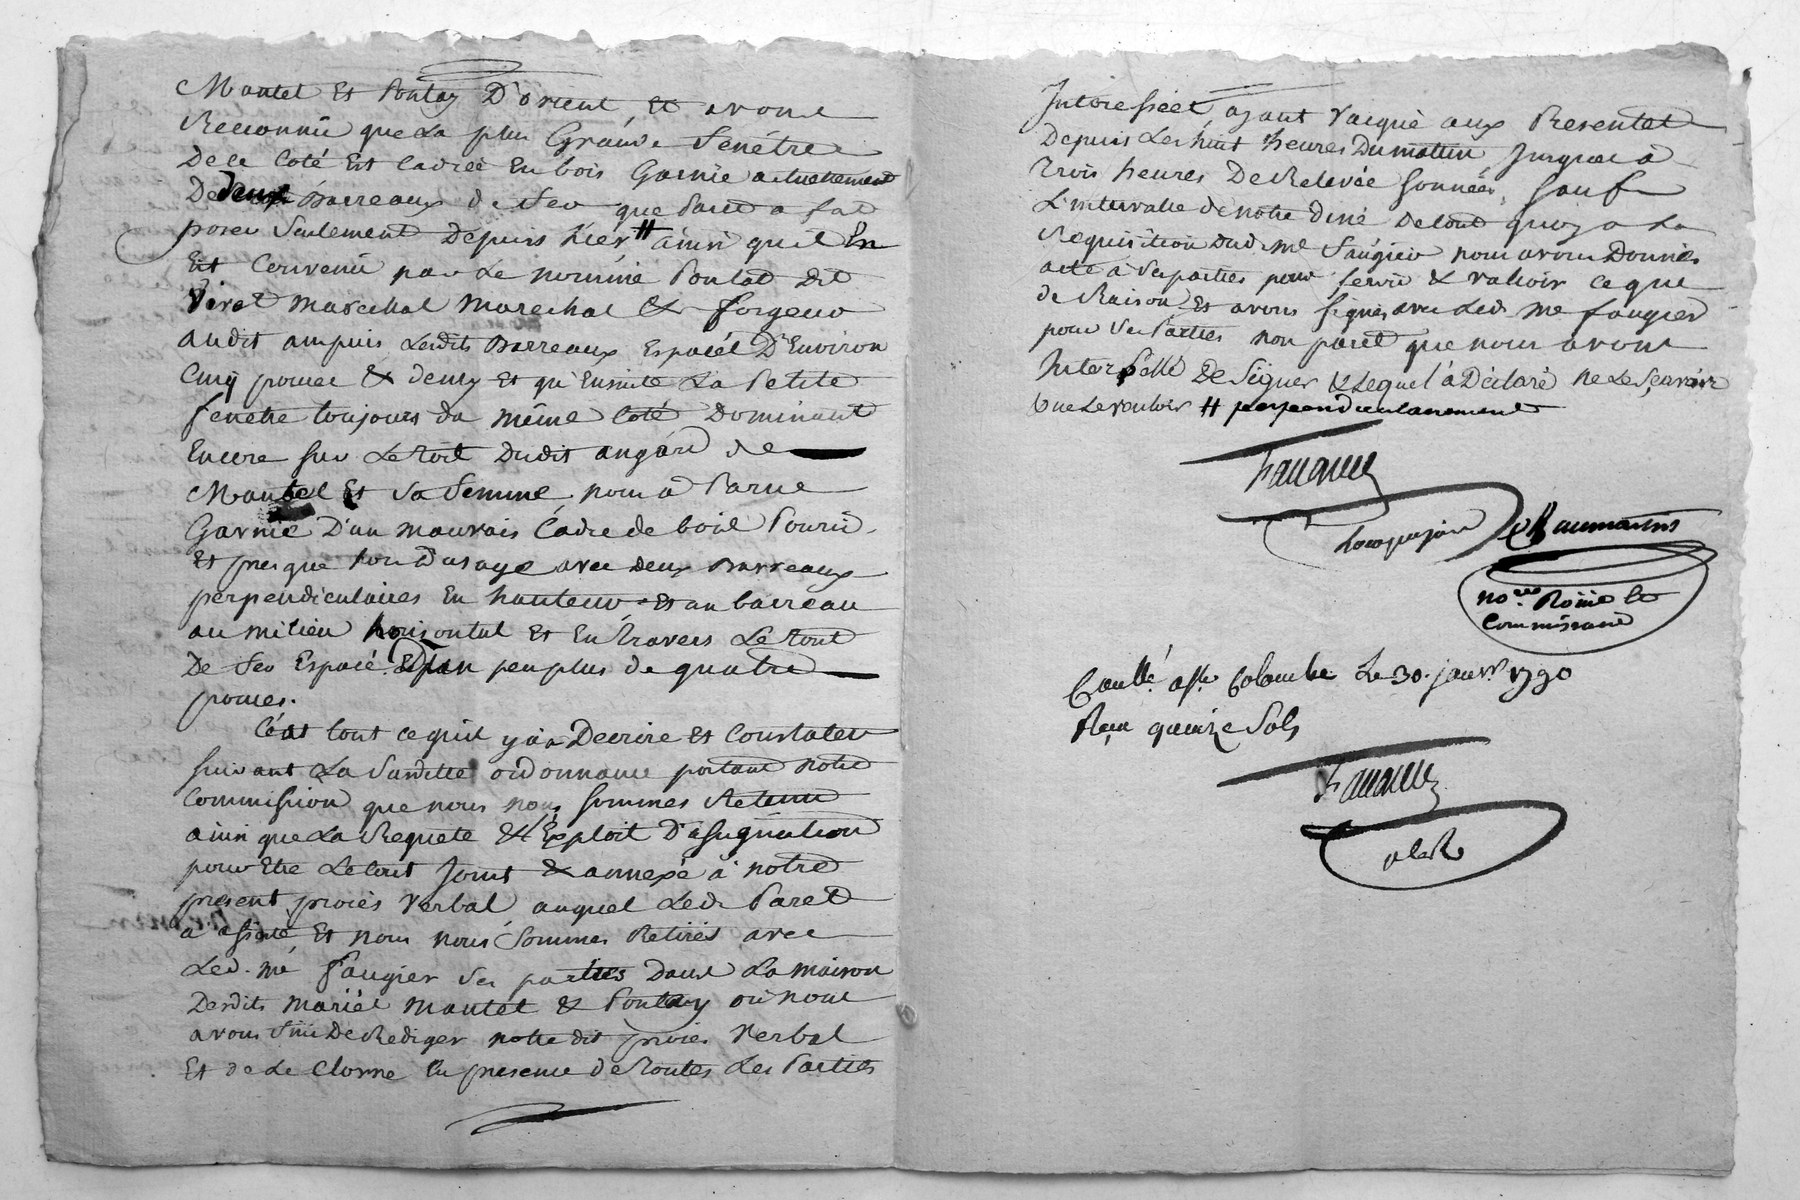 Mantel Et Pontay D'orient, et avons
Reconnû que La plus Grande fenêtre
De ce Coté Est Cadréé En bois Garnie actuellement
De deux Barreaux de fer que Paret a fait
poser Seulement Depuis hier # ainsi qu'il En
Est Convenû par Le nommé Poulat Dit
Virat Marechal & forgeur
audit ampuis Lesdits Barreaux Espacés D'Environ
Cinq pouces & demy Et qu'Ensuite La Petite
fenetre toujours du même Coté Dominant
Encore sur Le toit Dudit angard de
Mantel Et Sa femme, nous a Parue
Garnie D'un mauvais Cadre de bois Pourri
Et presque hors D'usage avec Deux Barreaux
perpendiculaires En hauteur Et un barreau
au milieu horisontal Et En Travers Le tout
De fer Espacé D'un peu plus de quatre
pouces.
C'est tout ce qu'il y a à Decrire Et Constater
suivant La Susditte ordonnance portant notre
Commission que nous nous sommes Retenu
ainsi que La Requete & Exploit D'assignation
pour Etre Le tout Joint & annexé à notre
present procès Verbal, auquel Led. Paret
a assisté, Et nous nous Sommes Retirés avec
Led. Me faugier Ses parties Dans La maison
Desdits mariés Mantel & Pontay où nous
avons fini De Rediger notre dit procès Verbal
Et de Le Clorre En presence de Toutes Les Parties
Interesséés ayant Vacqué aux Presentes
Depuis Les huit heures Du matin Jusques à
Trois heures De Relevée sonnées, sauf
L'intervalle de notre diné De tout quoy a La
Requisition Dud. Me faugier nous avons Donnés
acte à Ses parties pour servir & valloir ce que
de Raison, Et avons signés avec Led. Me faugier
pour Ses Parties non paret que nous avons
Interpellé De Signer & Lequel à Déclaré ne Le Sçavoir
# perpendiculairement
no.re Roïal &
Commissaire
Conllé. a Ste Colombe Le 30. janv.r 1790
Reçu quinze Sols